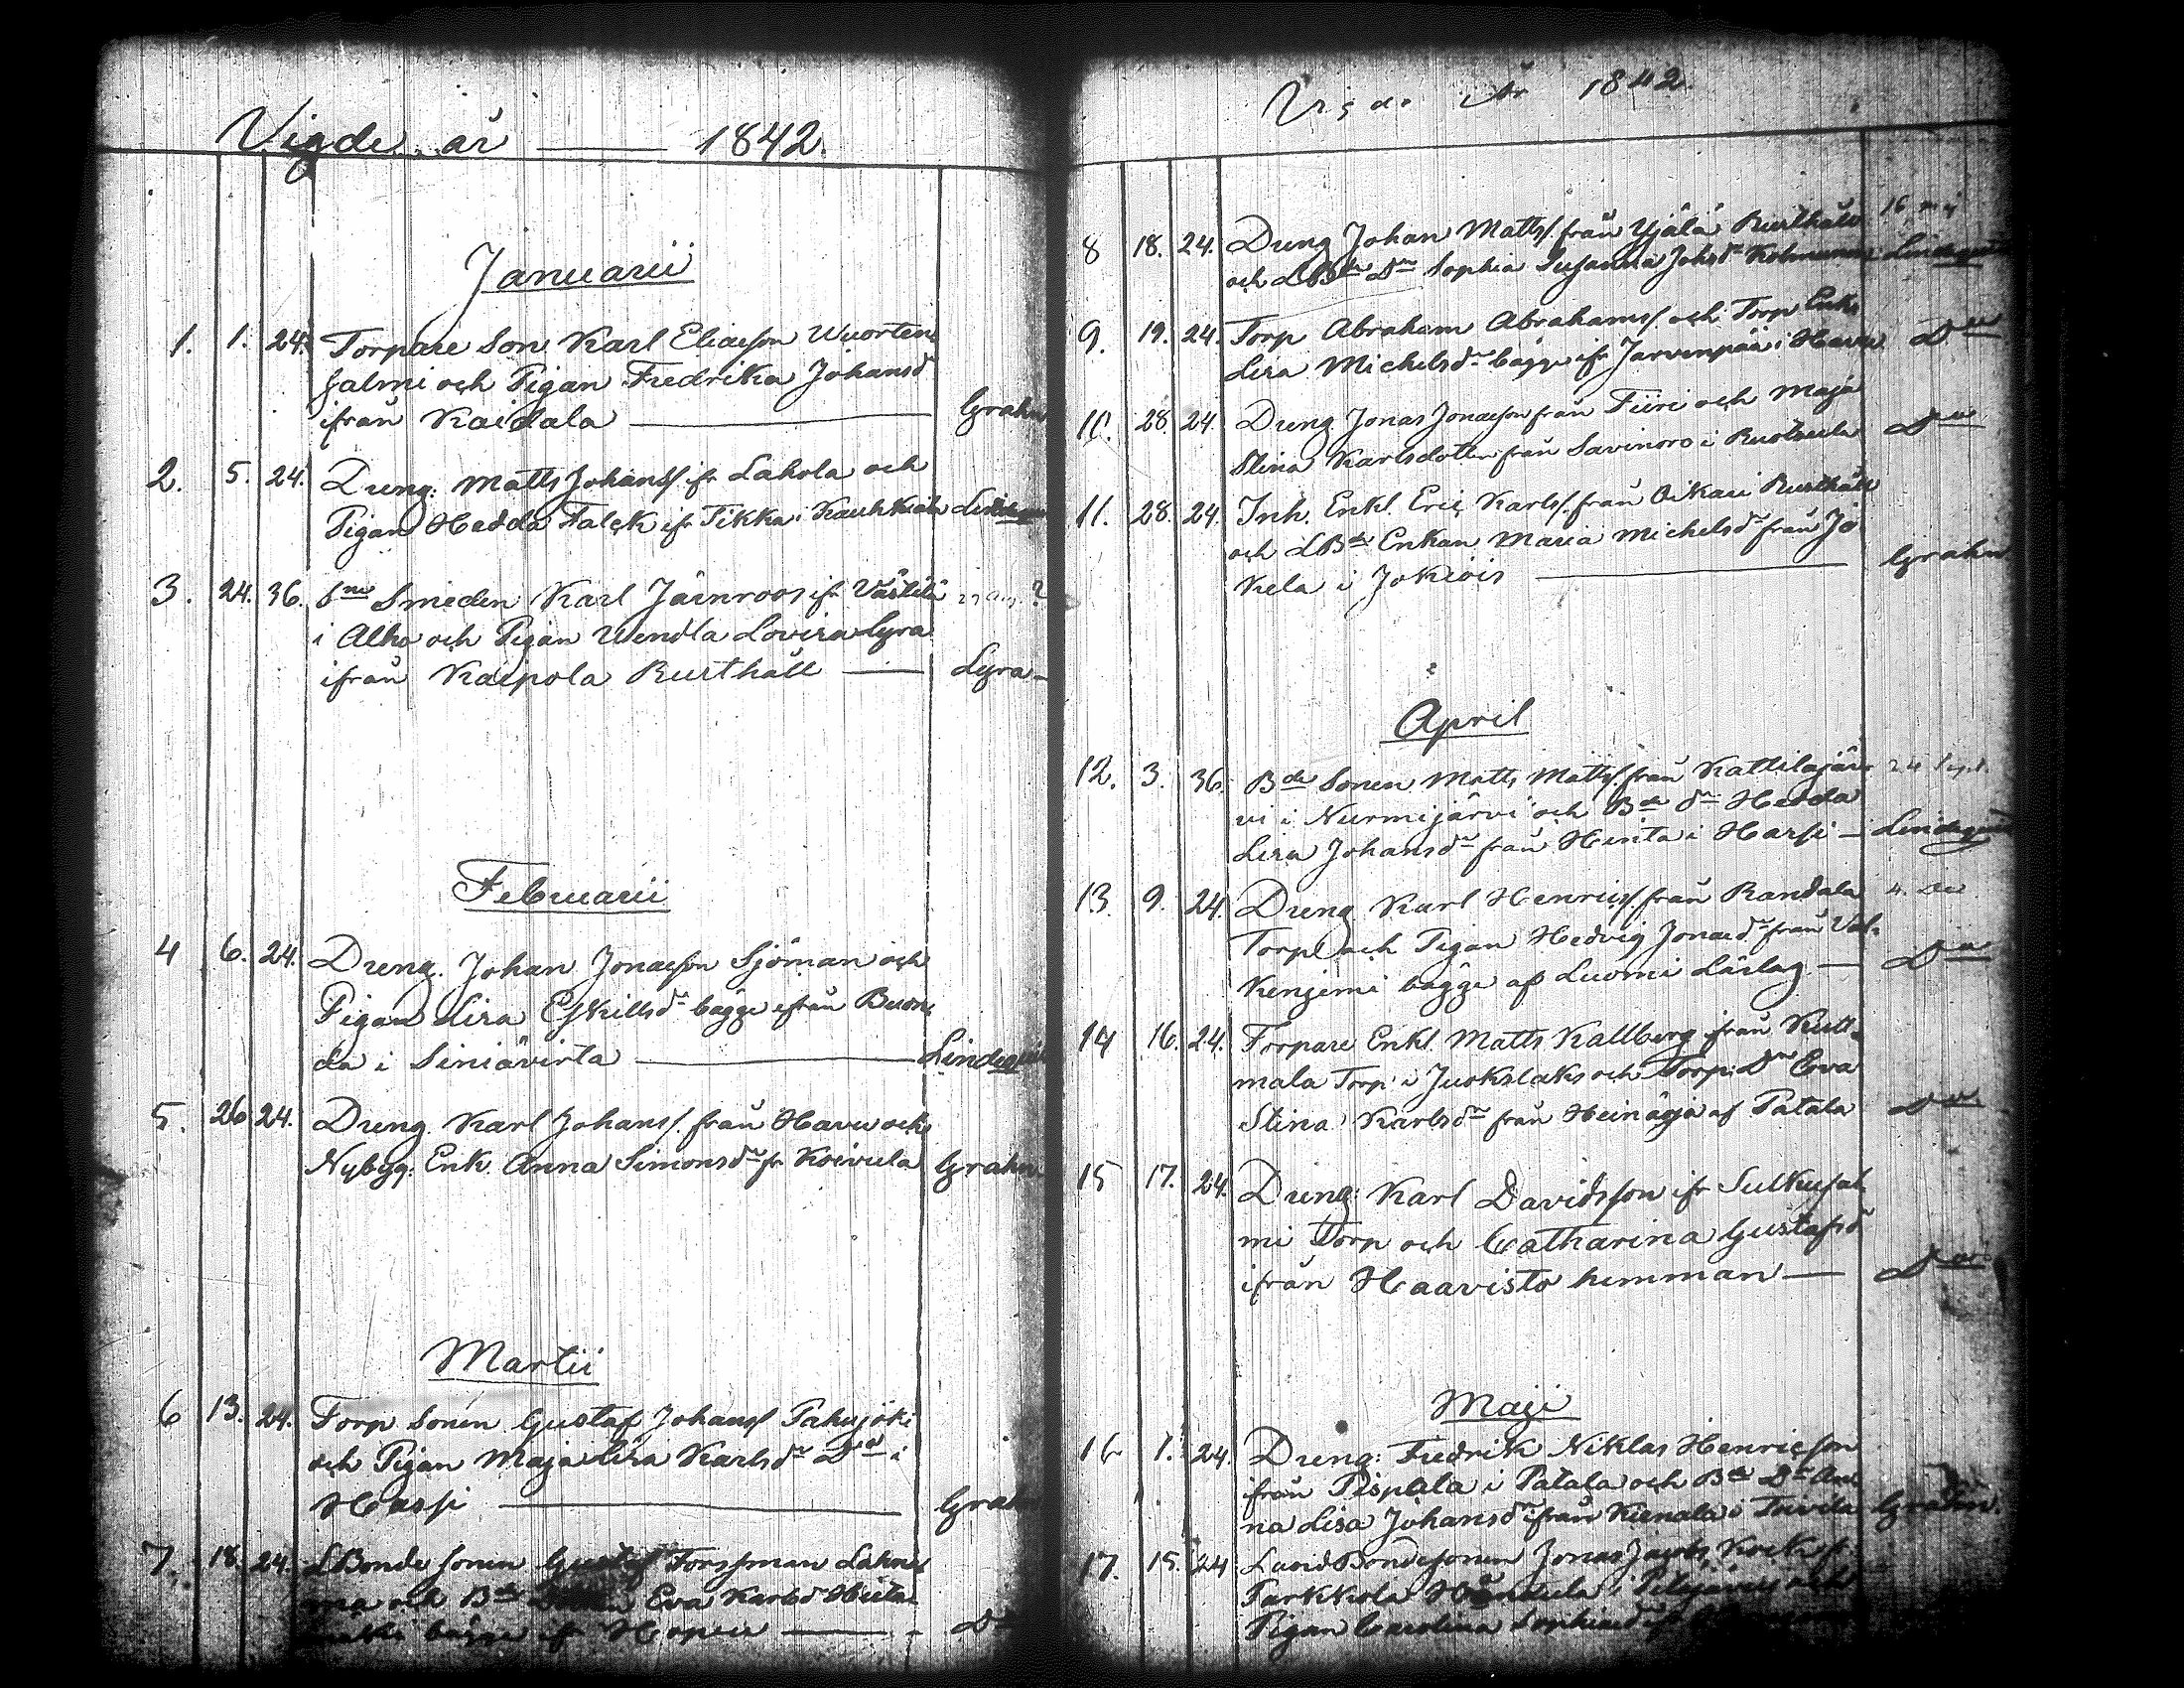 Vigde år — 1842.
Januarii
1. 1. 24. Torpare Son Karl Eliaeson Wuorten,
salmi och Pigan Fredrika Johansd
ifrån Kaidala — Grahn
2. 5. 24. Dreng: Matts Johanss ifr Lahola och
Pigan Hedda Falck ifr Tikka i Kauhkiala
3. 24. 36. Smeden Karl Järnroos ifr Västilä
i Alho och Pigan Wendla Lovisa Lyra
ifrån Kaipola Rusthåll — Lyra
Februarii
4 6. 24. Dreng. Johan Jonaeson Sjöman och
Pigan Lisa Eskillsdr bägge ifrån Buon,
da i Siniävirta — Lindequist
5. 26 24. Dreng. Karl Johanss. från Havu och
Nybyg: Enk. Anna Simonsdr fr Koivula Grahn
Martii
6 13. 24. Torp Sonen Gustaf Johanss Pahujoki
och Pigan Maja Lisa Karlsdr Do i
Hassi — Grahn
7. 18. 24. LBonde sonen Gustaf Forssman Lahnis
ma och Bde Eva Karlsd
bägge ifr — Do
Vigde år 1842.
8 18. 24. Dreng Johan Matts. från Yjälä Rusthåll 16 maj
och LBde Dr Sophia Susanna Johsdr Lindequist
9. 19. 24. Torp Abraham Abrahams. och Torp Enk,
Lisa Michelsdr bägge ifr Jarvenpää i Do
10. 28. 24. Dreng Jonas Jonaeson från Tiiri och Maja
Stina Karlsdotter från Savinoro i Ruotsula Do
11. 28. 24. Inh. Enkl. Eric Karls. från Oikari Rusthåll
och LBde Enkan Maria Michelsdr från Jo
kela i Jokiois — Grahn
April
12. 3. 36. Bde Sonen Matts Matts. från Kattilajär, 24 Sept.
vi i Nurmijärvi och Bde dr Hedda
Lisa Johansdr från Henta i Harsi — Lindequist
13. 9. 24. Dreng Karl Henrics. från Randala
Torp och Pigan Hedvig Jonaedr från Val,
kenjemi bägge af Luomi Läslag — Do
14 16. 24. Torpare Enkl. Matts Kallberg från Kutt,
mala Torp i Juokslaks och Torp: Dr Eva
Stina Karlsdr från Heinäoja af Patala Do
15 17. 24. Dreng: Karl Davidsson ifr Sulkusal,
mi Torp och Catharina Gustafsd
ifrån Haavisto hemman — Do
Maji
16 1. 24. Dreng: Fredrik Niklas Henricson
från Pispala i Patala och Bde Dr An
na Lisa Johansdr från Kienala i Toivila Grahn.
17. 15. 24 Land Bondesonen Jonas Jacobs.
Tarkkola
Pigan Carolina